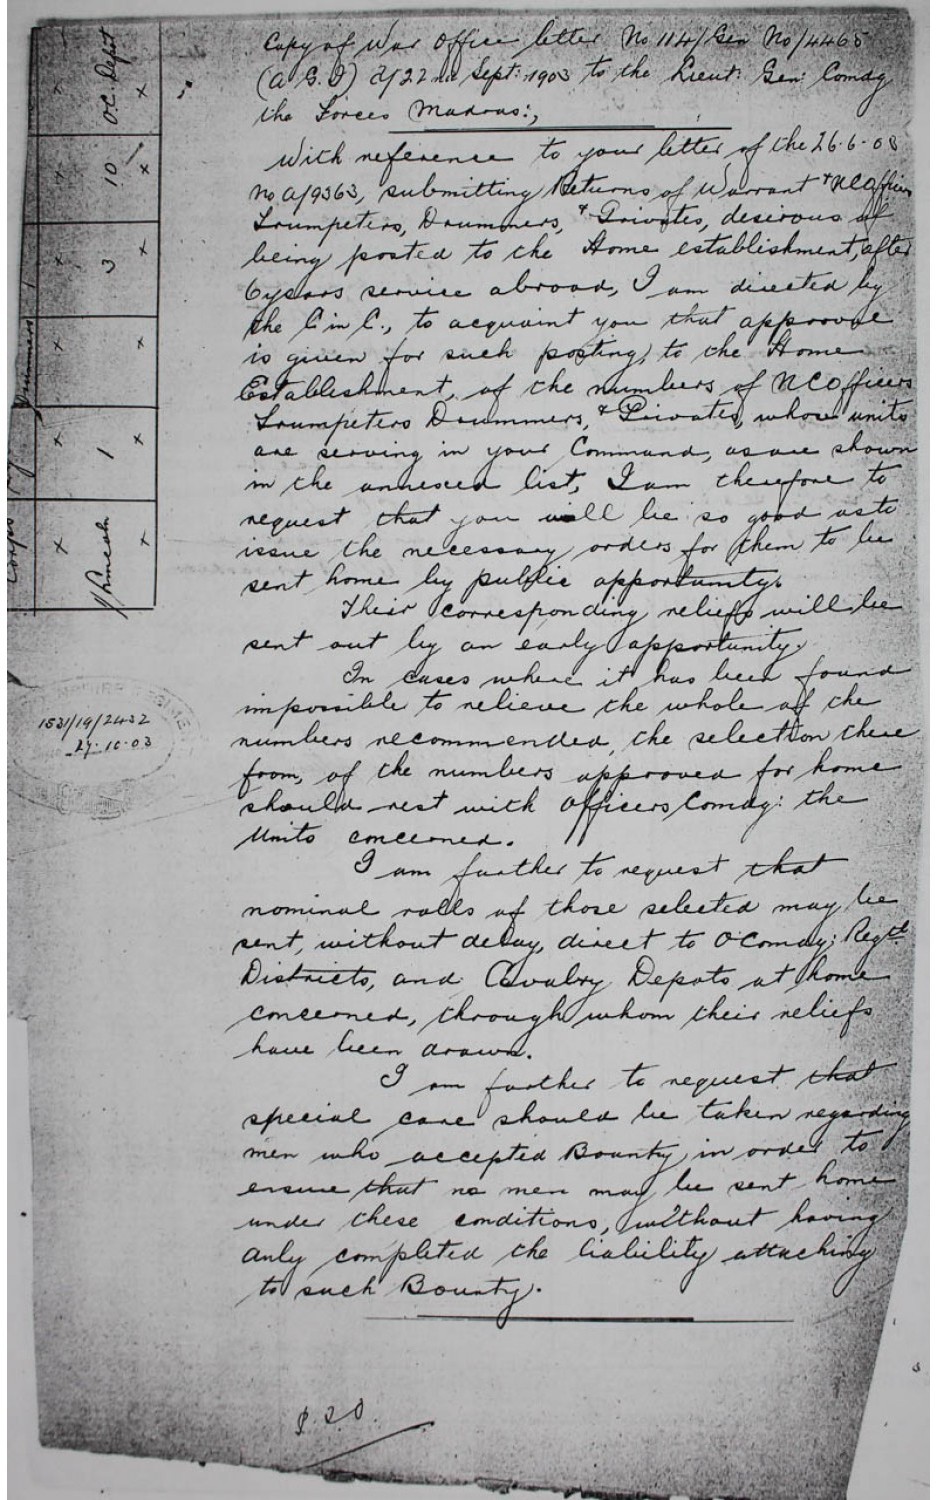 Copy of War Office letter No 114/Gen No/4465
(A.G.2) d/22nd Sept: 1903 to the Lieut: Gen: Comdg
the Forces Madras:,
With reference to your letter, of the 26.6.03
no A/9363, submitting Returns of Warrant & NCOfficers
Trumpeters, Drummers, & Privates, desirous of
being posted to the Home establishment, after
6 years service abroad, I am directed by
the C in C., to acquaint you that approval
is given for such posting, to the Home
Establishment, of the numbers of NCOfficers
Trumpeters Drummers, & Privates, whose units
are serving in your Command, as are shown
in the annexed list, I am therefore to
request that you will be so good as to
issue the necessary orders for them to be
sent home by public opportunity.
Their corresponding reliefs will be
sent out by an early opportunity.
In cases where it has been found
impossible to relieve the whole of the
numbers recommended, the selection there
from, of the numbers approved for home
should rest with Officers Comdg: the
Units concerned.
I am further to request that
nominal rolls of those selected may be
sent, without delay, direct to O Comdg: Regtl
Districts, and Cavalry Depots at home
concerned, through whom their reliefs
have been drawn.
I am further to request that
special care should be taken regarding
men who accepted Bounty, in order to
ensure that no men may be sent home
under these conditions, without having
duly completed the liability attaching
to such Bounty.
1531/19/2432
27.10.03
x x x x x x
x 1 x 3 10 O.C. Depot
x x x x x
Drummers
Corps